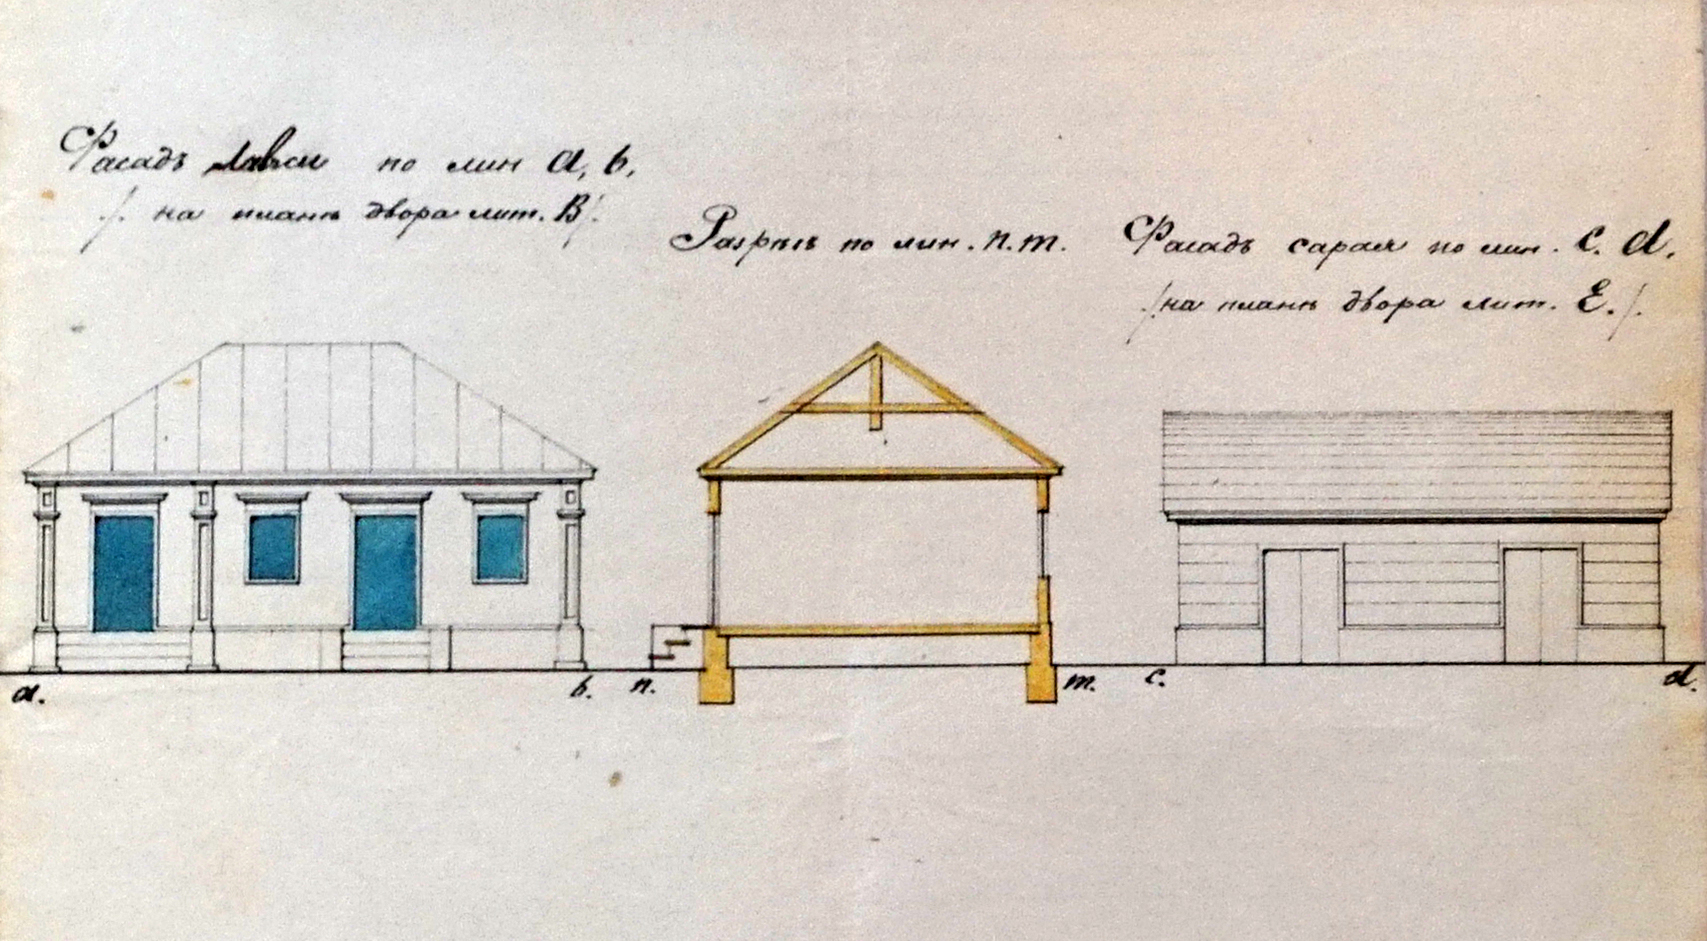 Фасадъ лавки по лин a, b.
/. на планѣ двора лит. B/.
Разрѣзъ по лин. n. m.
Фасадъ сарая по лин. c. d.
/.на планѣ двора лит. E./.
a.
b.
n.
m.
c.
d.